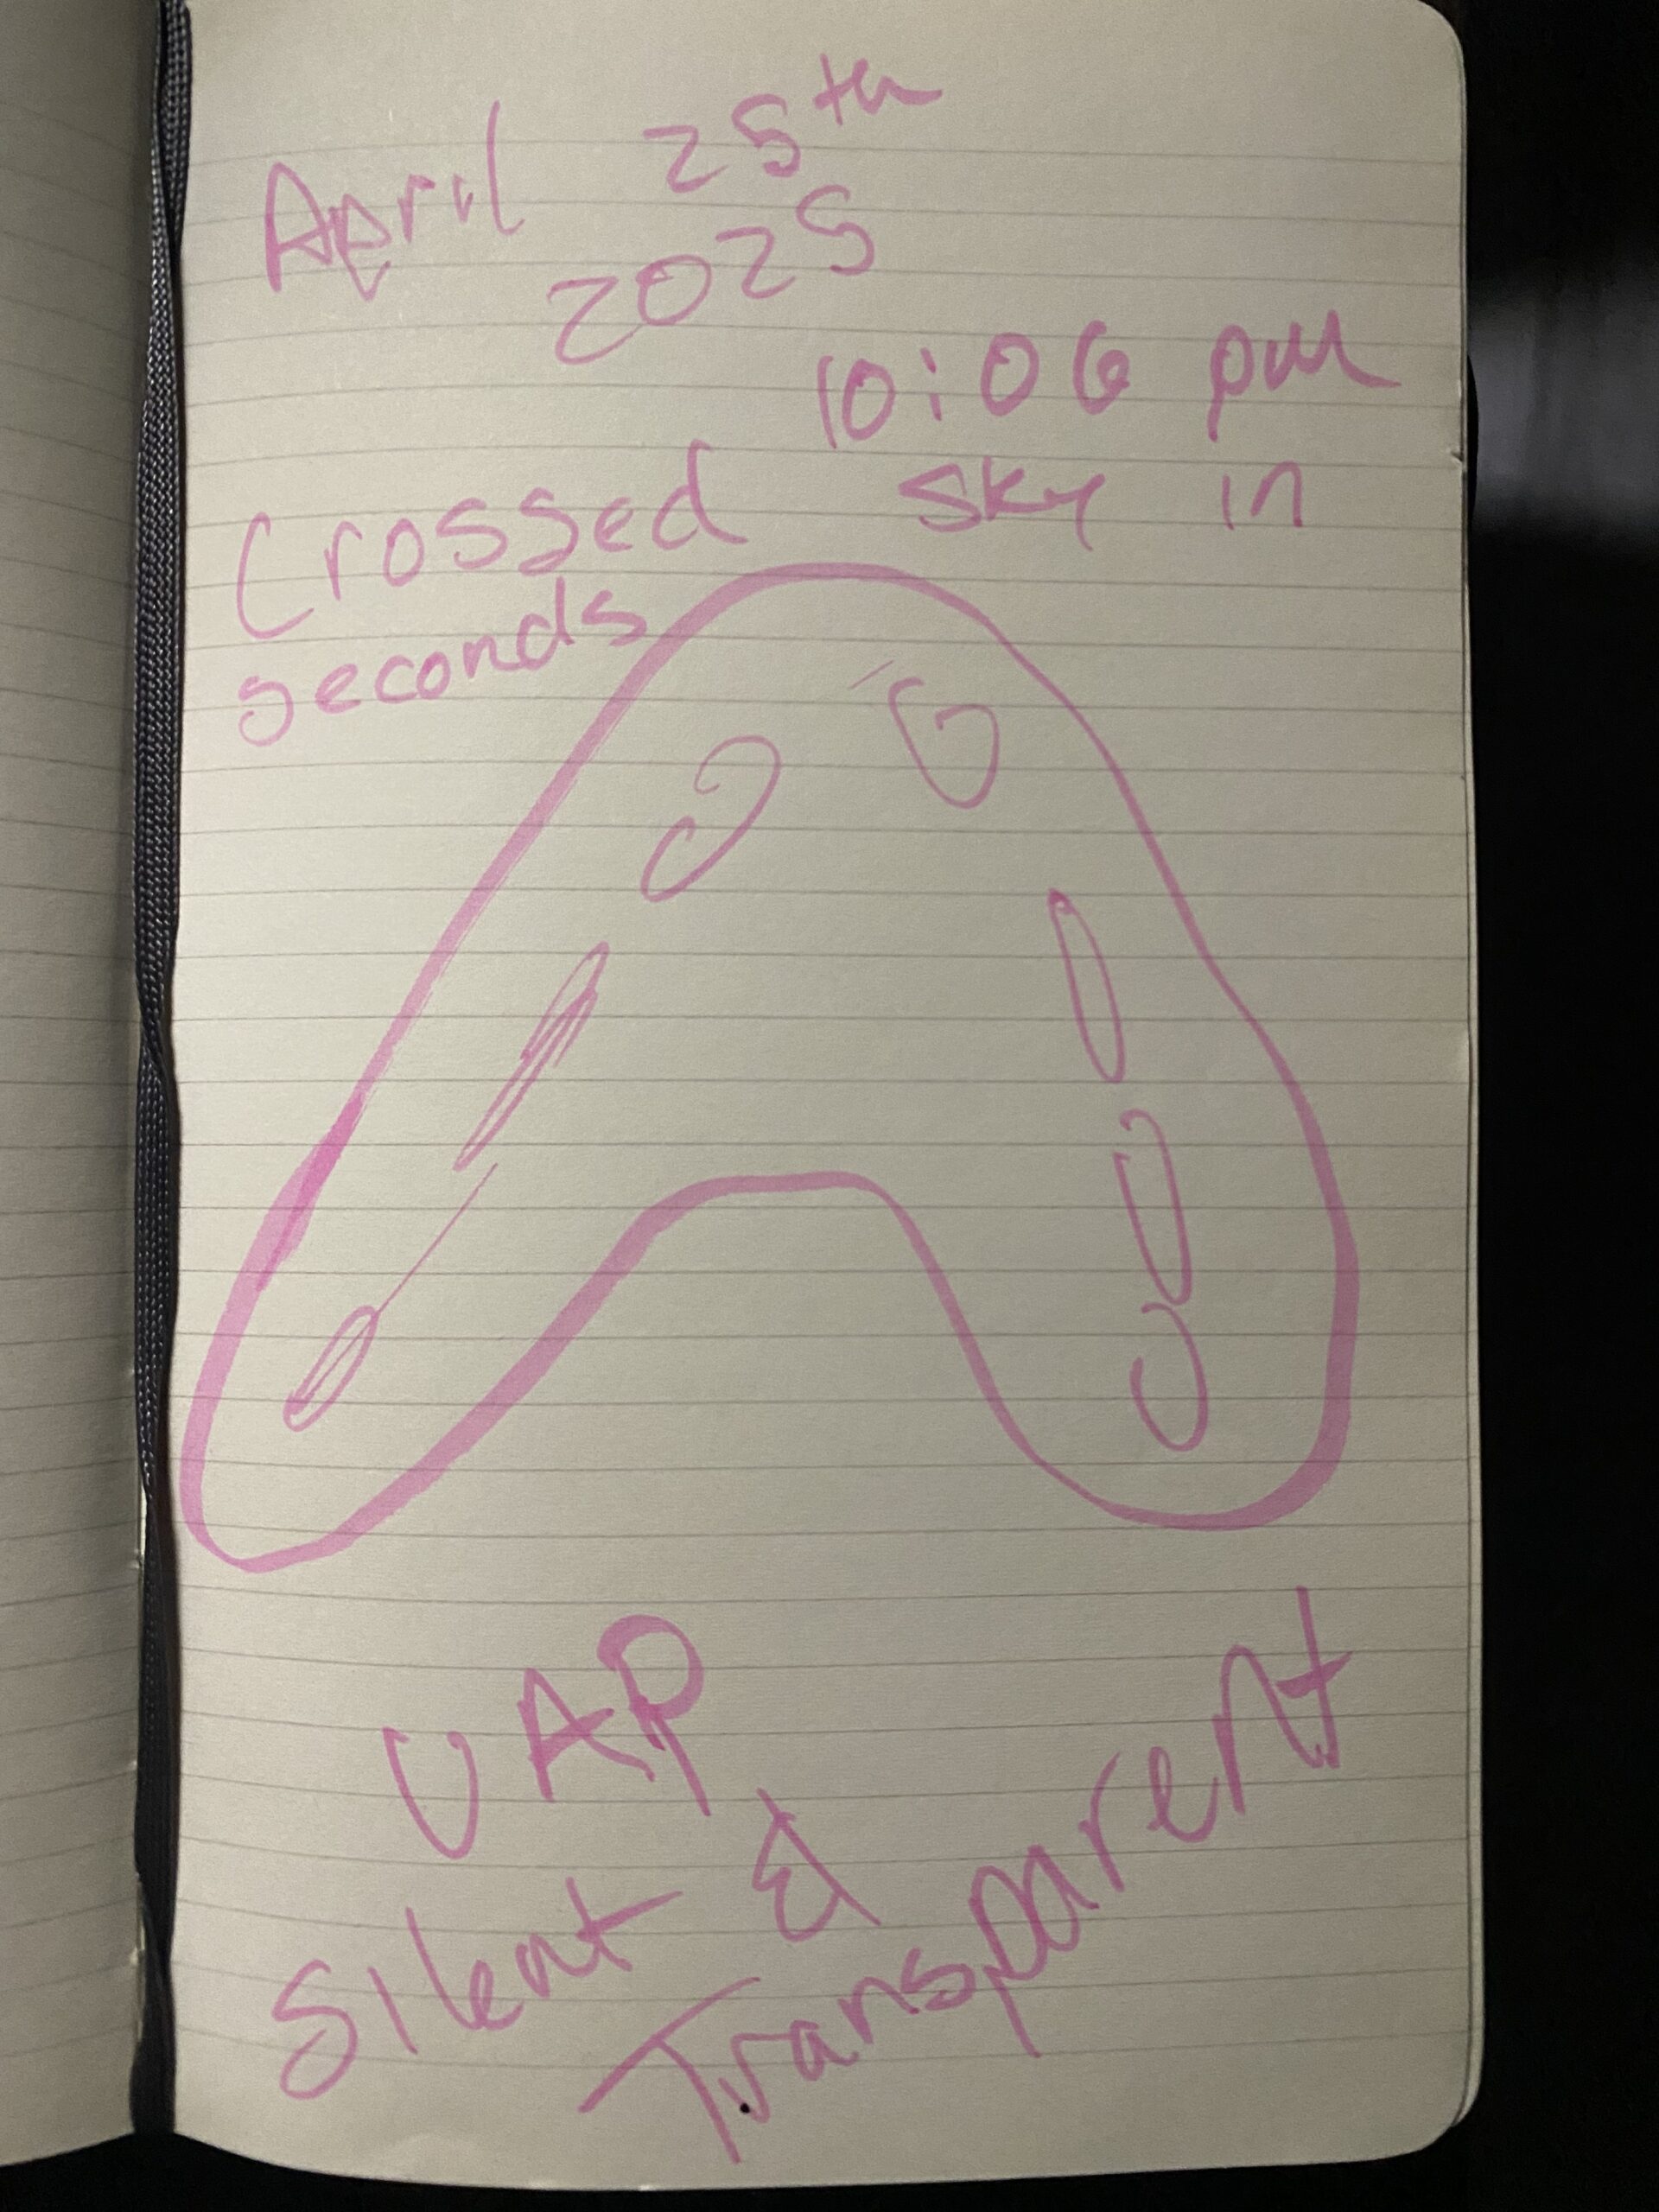 April 25th
2025
10:06 pm
Crossed sky in
seconds
UAP
Silent &
Transparent